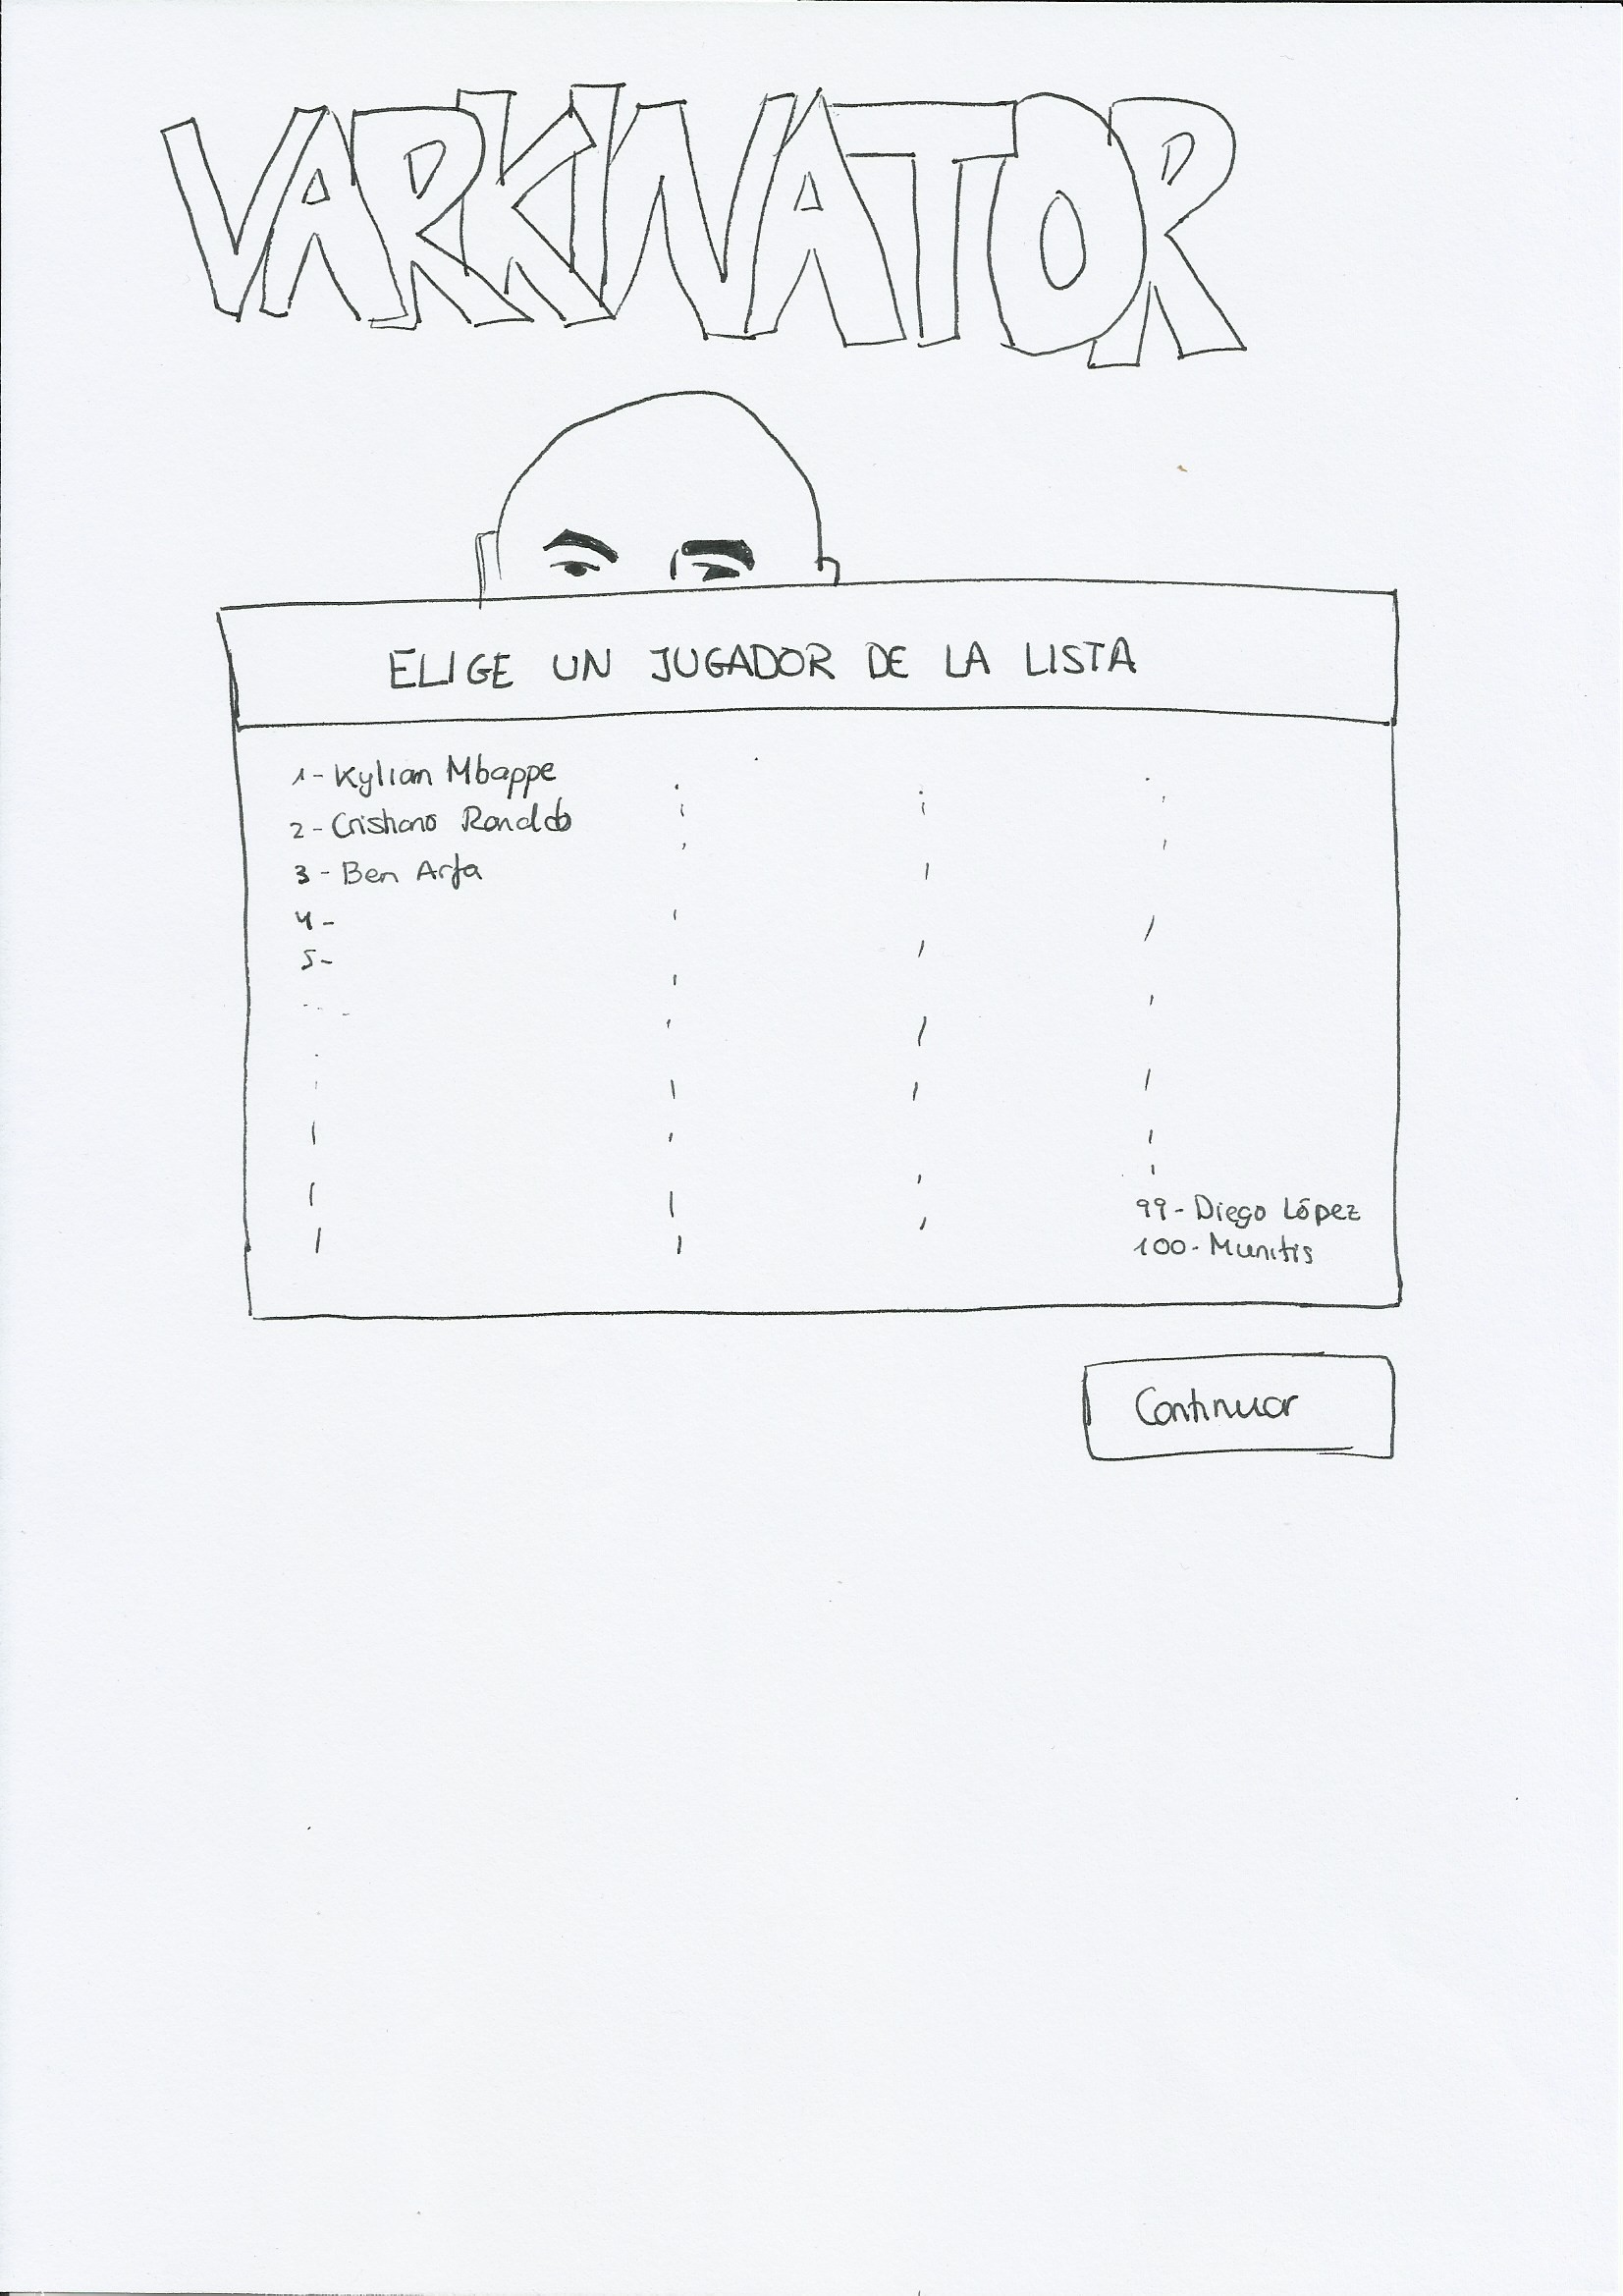 VARKINATOR
ELIGE UN JUGADOR DE LA LISTA
1- Kylian Mbappe
2- Cristiano Ronaldo
3- Ben Arfa
4-
5-
99- Diego López
100- Munitis
Continuar